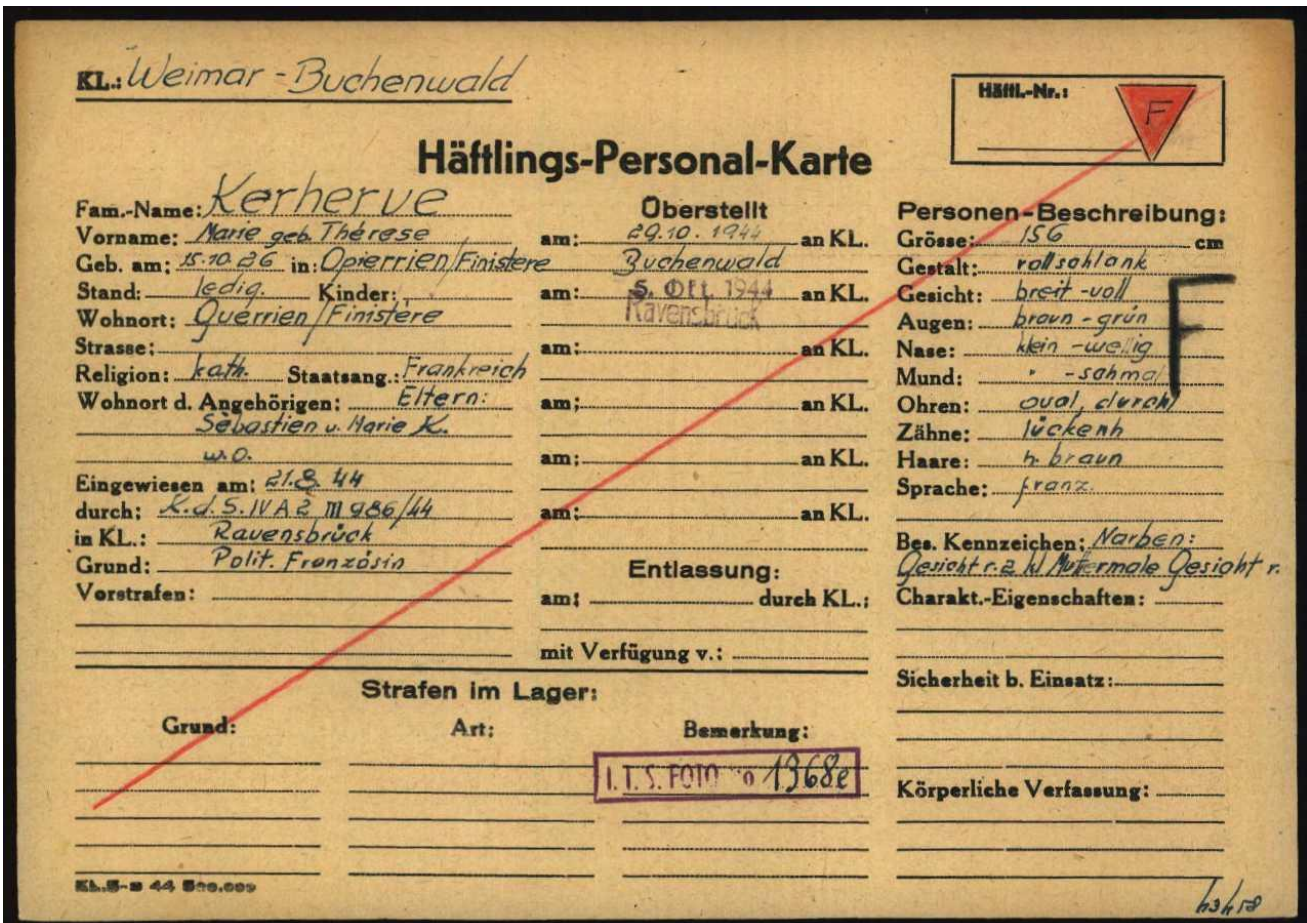 KL.: Weimar - Buchenwald
Häftl.-Nr.:
F
Häftlings-Personal-Karte
Fam.-Name: Kerherve
Vorname: Marie geb. Thérese
Geb. am: 15.10.26 in: Opierrien/Finistere
Stand: ledig. Kinder:
Wohnort: Querrien/Finistere
Strasse:
Religion: kath. Staatsang.: Frankreich
Wohnort d. Angehörigen: Eltern:
Sebastien u. Marie K.
w.O.
Eingewiesen am: 21.8.44
durch: K.d.S. IV A 2 III 986/44
in KL.: Ravensbrück
Grund: Polit. Französin
Vorstrafen:
Überstellt
am: 29.10.1944 an KL.
Buchenwald
am: 5. Okt. 1944 an KL.
Ravensbrück
am: an KL.
am: an KL.
am: an KL.
am: an KL.
Entlassung:
am: durch KL.:
mit Verfügung v.:
Personen-Beschreibung:
Grösse: 156 cm
Gestalt: vollschlank
Gesicht: breit - voll
Augen: braun - grün
Nase: klein - wellig
Mund: " - schmal
Ohren: oval, durchl
Zähne: lückenh
Haare: h. braun
Sprache: franz.
F
Bes. Kennzeichen: Narben:
Gesicht r. 2 kl Muttermale Gesicht r.
Charakt.-Eigenschaften:
Sicherheit b. Einsatz:
Körperliche Verfassung:
Strafen im Lager:
Grund: Art: Bemerkung:
I.T.S. FOTO No 1368e